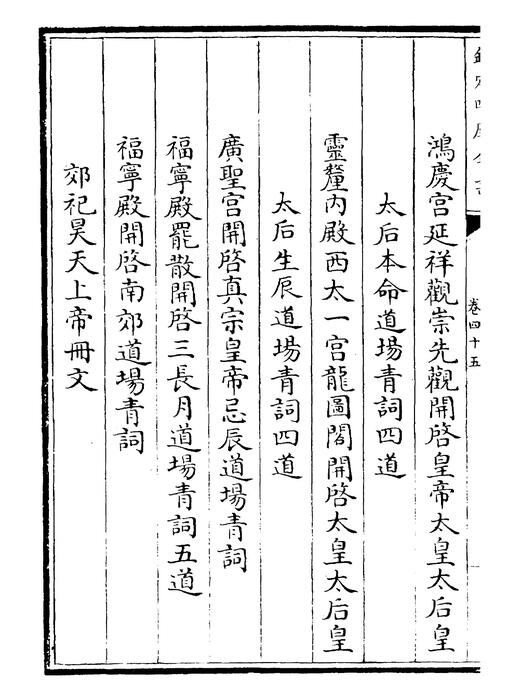 欽定四庫全書
卷四十五
鴻慶宮延祥觀崇先觀開啓皇帝太皇太后皇
太后本命道場青詞四道
靈釐内殿西太一宮龍圖閣開啓太皇太后皇
太后生辰道場青詞四道
廣聖宮開啓真宗皇帝忌辰道場青詞
福寧殿罷散開啓三長月道場青詞五道
福寧殿開啓南郊道場青詞
郊祀昊天上帝冊文